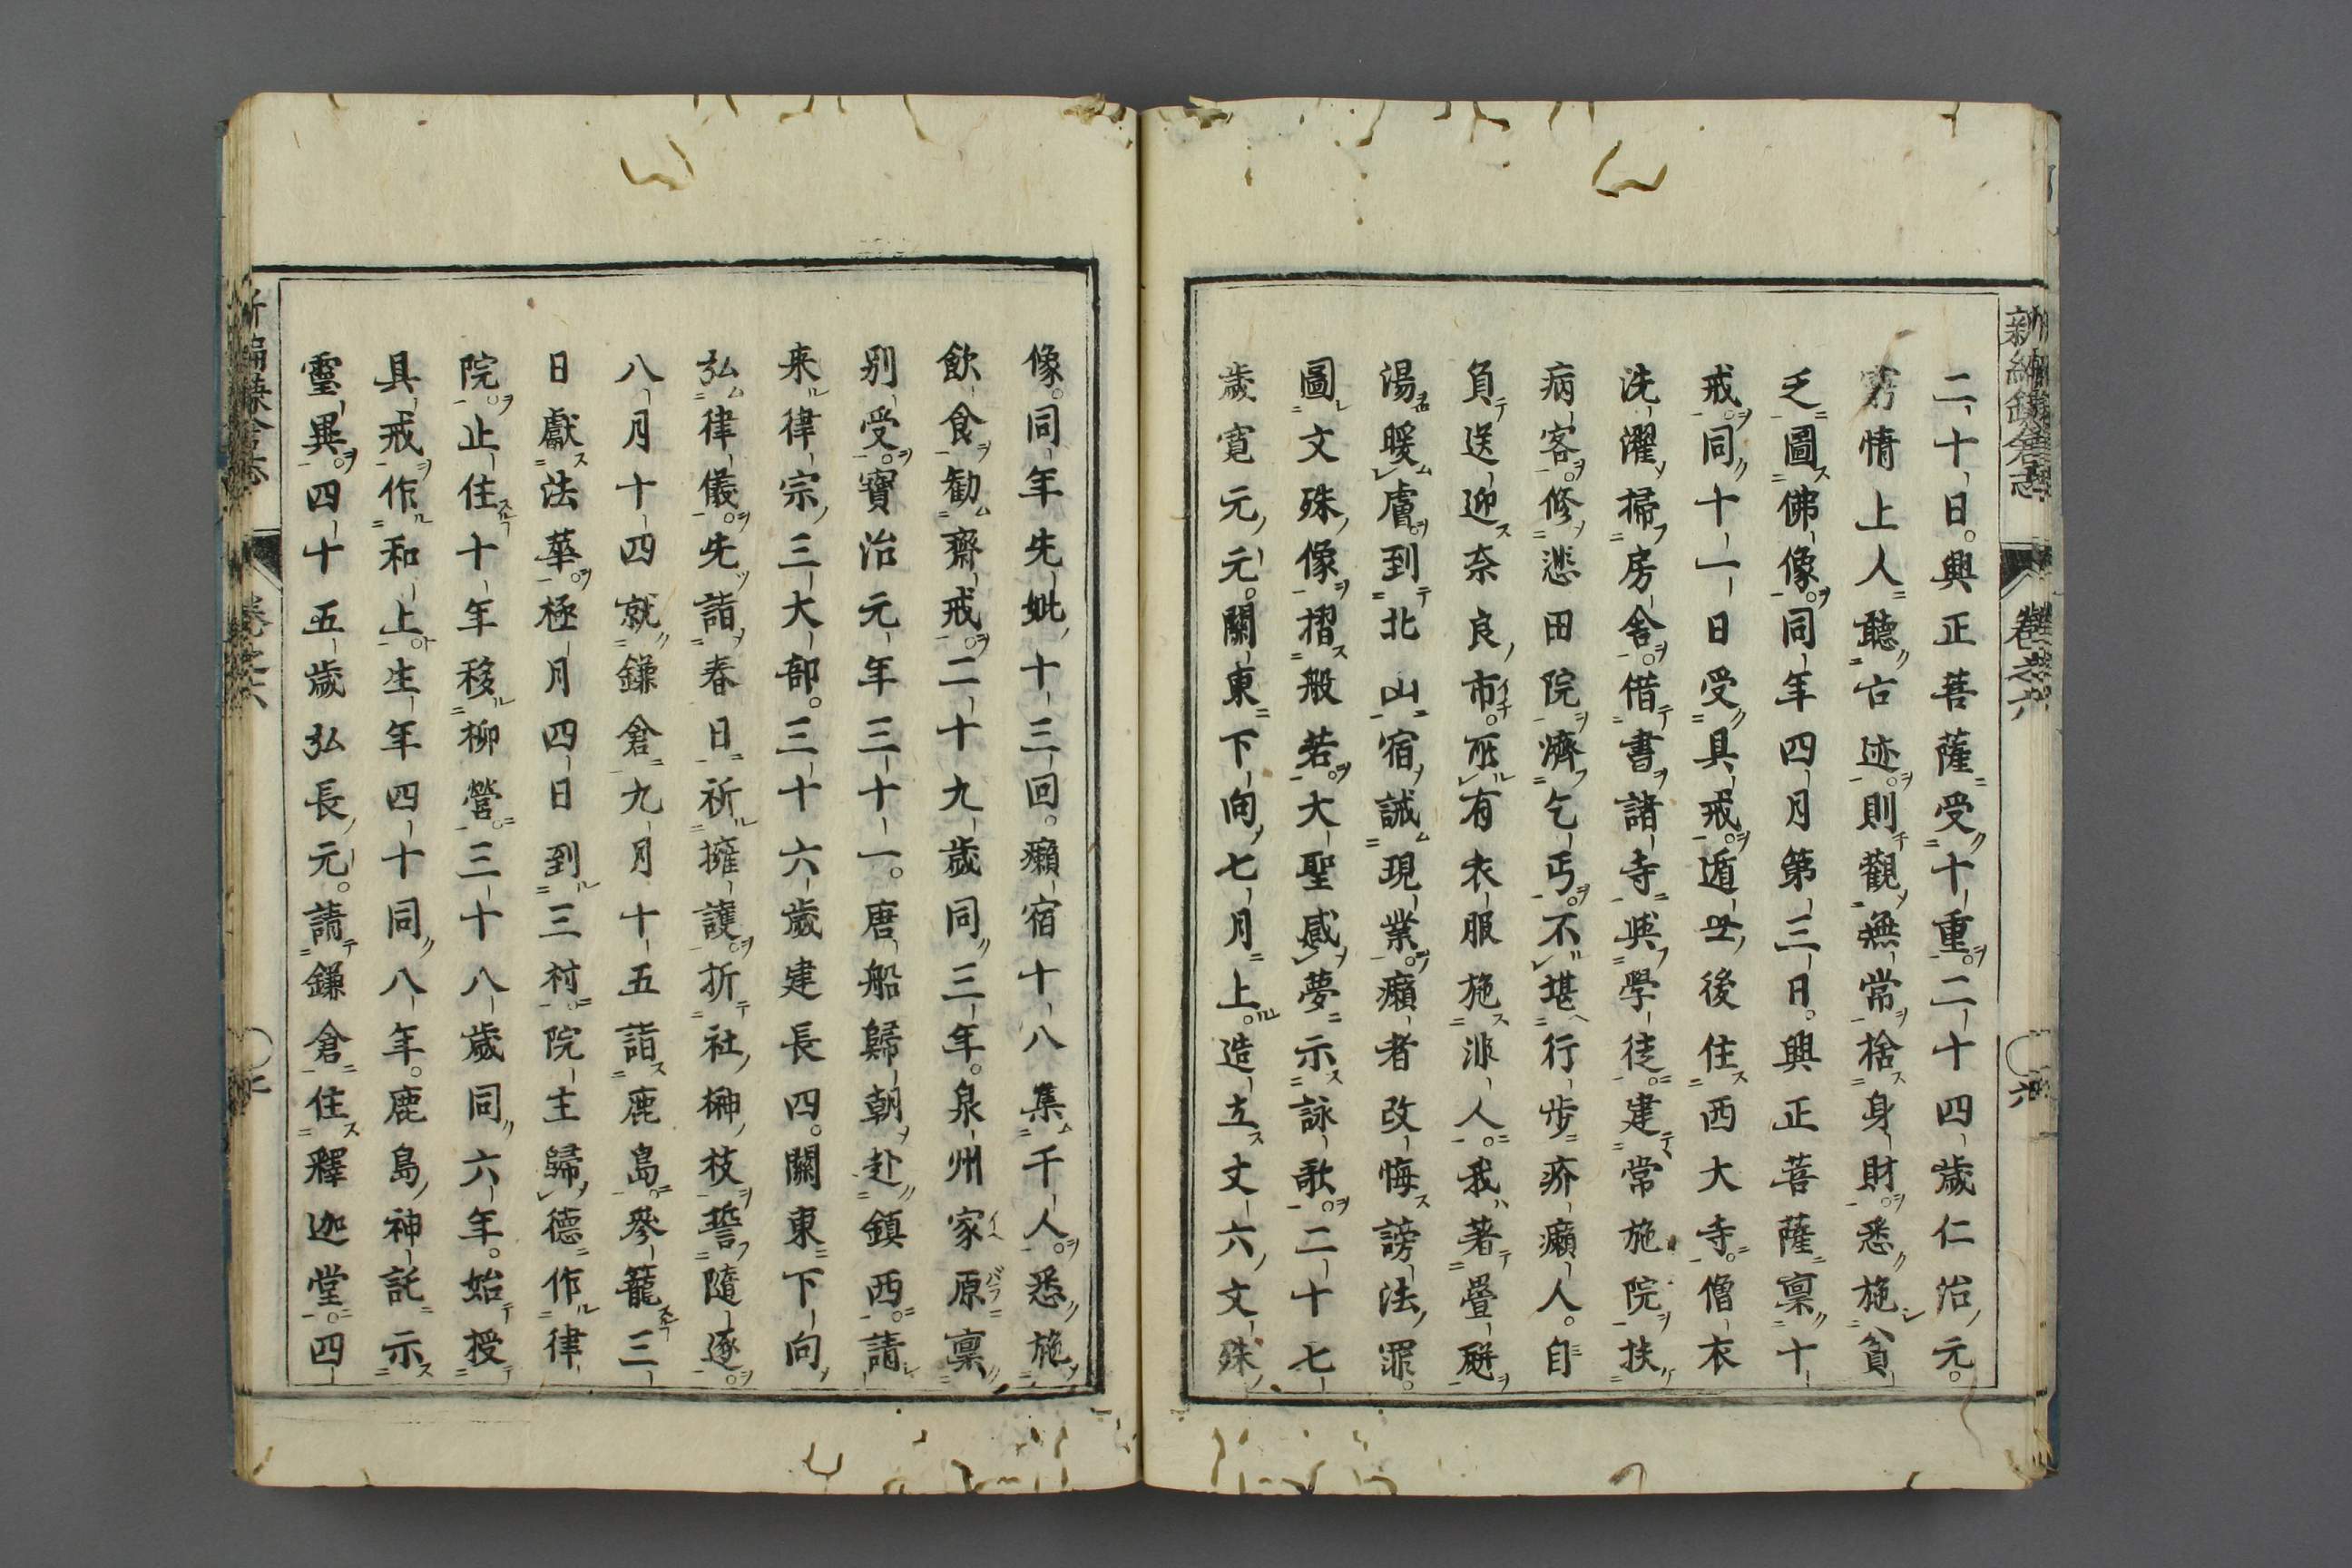 新編鎌倉志 卷之六 六
二十日。興正菩薩受十重。二十四歲仁治元。
窮情上人聽古迹。則觀無常捨身財。悉施貧
乏圖佛像。同年四月第三日。興正菩薩稟十
戒。同十一日受具戒。遁世後住西大寺。僧衣
洗濯掃房舍。借書諸寺與學徒。建常施院扶
病客。修悲田院濟乞丐。不堪行步疥癩人。自
負送迎奈良市。所有衣服施非人。我著疊
湯暖膚。到北山宿誡現業。癩者改悔謗法罪。
圖文殊像摺般若。大聖感夢示詠歌。二十七
歲寬元元。關東下向七月上。造立丈六文殊
像。同年先妣十三回。癩宿十八集千人。悉施
飲食勸齋戒。二十九歲同三年。泉州家原稟
別受。寶治元年三十一。唐船歸朝赴鎮西。請
来律宗三大部。三十六歲建長四。關東下向
弘律儀。先詣春日祈擁護。折社榊枝誓隨逐。
八月十四就鎌倉九月十五詣鹿島。參籠三
日獻法華。極月四日到三村。院主歸德作律
院。止住十年移柳營。三十八歲同六年。始授
具戒作和上。生年四十同八年。鹿島神託示
靈異。四十五歲弘長元。請鎌倉住釋迦堂。四
新編鎌倉志 卷之六